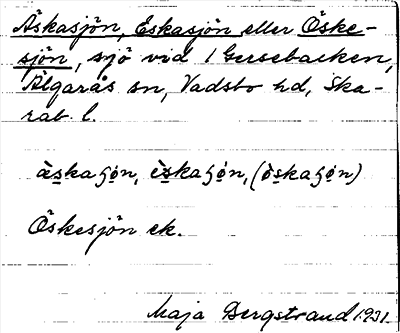 Äskasjön, Eskasjön eller Öske-
sjön, sjö vid 1 Gersebacken,
Älgarås sn, Vadsbo hd, Ska-
rab. l.
äskaɧön, èskaɧön, (öskaɧön)
Öskesjön ek.
Maja Bergstrand 1931.